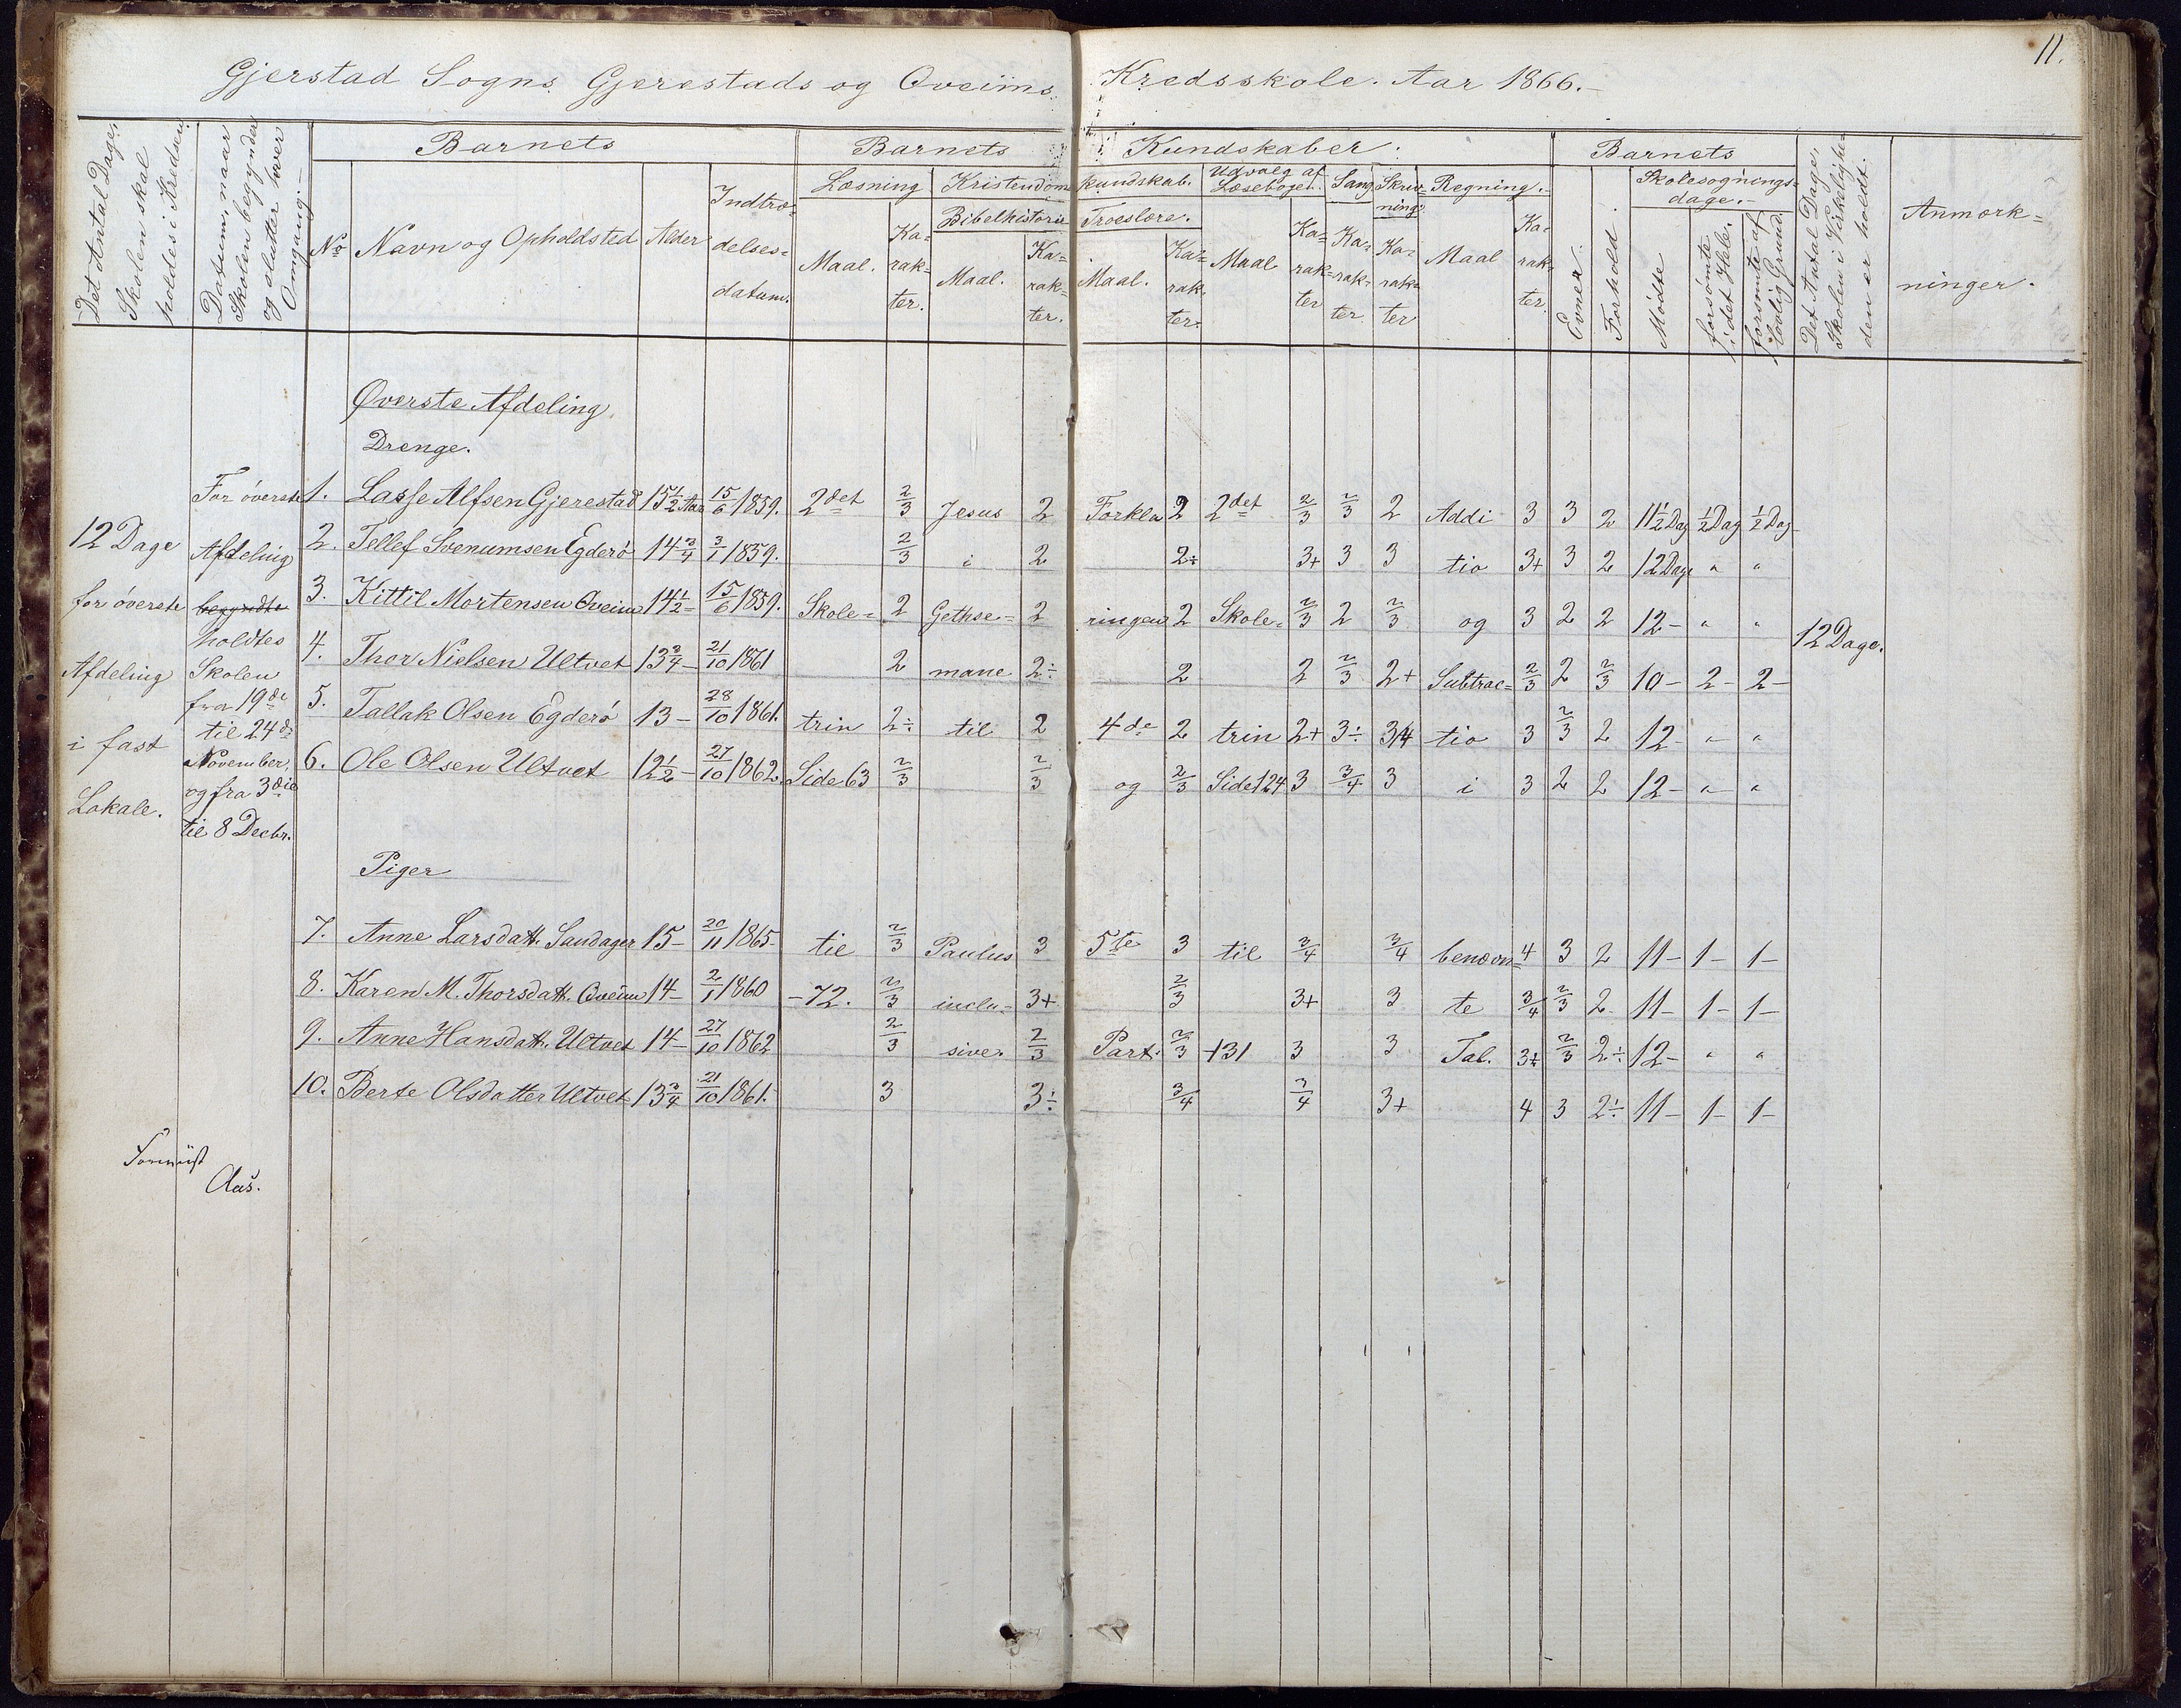 11.
Gjerstad Sogns Gjerestads og Qveims Kredsskole. Aar 1866.-
Det Antal Dage, Skolen skal holdes i Kredsen
Datum, naar Skolen begynder og slutter hver Omgang.-
Barnets
No
Navn og Opholdsted
Alder
Indtræ-
delses-
datum.
Barnets Kundskaber.
Læsning
Maal.
Ka-
rak-
ter.
Kristendomskundskab.
Bibelhistorie
Maal.
Ka-
rak-
ter.
Troeslære.
Maal.
Ka-
rak-
ter.
Udvalg af Læsebogen.
Maal
Ka-
rak-
ter
Sang
Ka-
rak-
ter
Skriv-
ning
Ka-
rak-
ter
Regning.-
Maal
Ka-
rak-
ter.
Barnets
Evner.
Forhold.
Skolesøgnings-
dage.-
Mødte
forsømte i det Hele.
forsømte af lovlig Grund.
Det Antal Dage, Skolen i Virkelighe-
den er holdt.
Anmærk-
ninger.
Øverste Afdeling
Drenge.
12 Dage
for øverste
Afdeling
i fast
Lokale.
For øverste
Afdeling
begyndte
holdtes
Skolen
fra 19de
til 24de
November,
og fra 3die
til 8 Decbr.
1. Lasse Alfsen Gjerestad 15 1/2 Aar 15/6 1859. 2det 2/3 Jesus 2 Forkla 2 2det 2/3 2/3 2 Addi 3 3 2 11 1/2 Dag 1/2 Dag 1/2 Dag
2. Tellef Svenumsen Egderø 14 3/4 3/1 1859. 2/3 i 2 2÷ 3+ 3 3 tio 3+ 3 2 12 Dage " "
3. Kittil Mortensen Qveim 14 1/2 - 15/6 1859. Skole- 2 Gethse- 2 ringen 2 Skole- 2/3 2 2/3 og 3 2 2 12 - " " 12 Dage.
4. Thor Nielsen Ultvet 13 3/4 - 21/10 1861 2 mane 2÷ 2 2 2/3 2+ Subtrac- 2/3 2 2/3 10 - 2 - 2 -
5. Tallak Olsen Egderø 13 - 28/10 1861. trin 2÷ til 2 4de 2 trin 2+ 3÷ 3/4 tio 3 2/3 2 12 - " "
6. Ole Olsen Ultvet 12 1/2 - 27/10 1862. Side 63 2/3 2/3 og 2/3 Side 124 3 3/4 3 i 3 2 2 12 - " "
Piger
7. Anne Larsdatt. Sandager 15 - 20/11 1865 - til 2/3 Paulus 3 5te 3 til 3/4 3/4 benævn- 4 3 2 11 - 1 - 1 -
8. Karen M. Thorsdatt. Qveim 14 - 2/1 1860 - 72. 2/3 inclu- 3+ 2/3 3+ 3 te 3/4 2/3 2 11 - 1 - 1 -
9. Anne Hansdatt. Ultvet 14 - 27/10 1862 2/3 sive. 2/3 Part. 2/3 + 131 3 3 Tal. 3+ 2/3 2÷ 12 - " "
10. Berte Olsdatter Ultvet 13 3/4 21/10 1861. 3 3÷ 3/4 3/4 3+ 4 3 2÷ 11 - 1 - 1 -
Aas.